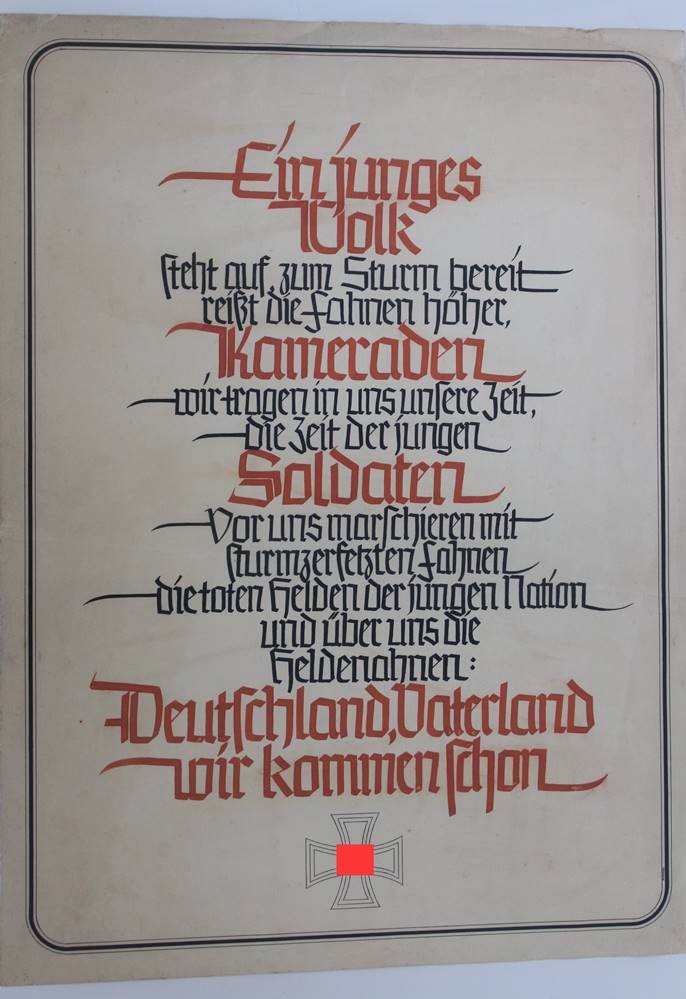 Ein junges
Volk
steht auf, zum Sturm bereit
reißt die Fahnen höher,
Kameraden
wir tragen in uns unsere Zeit,
die Zeit der jungen
Soldaten
Vor uns marschieren mit
sturmzerfetzten Fahnen
die toten Helden der jungen Nation
und über uns die
Heldenahnen:
Deutschland, Vaterland
wir kommen schon